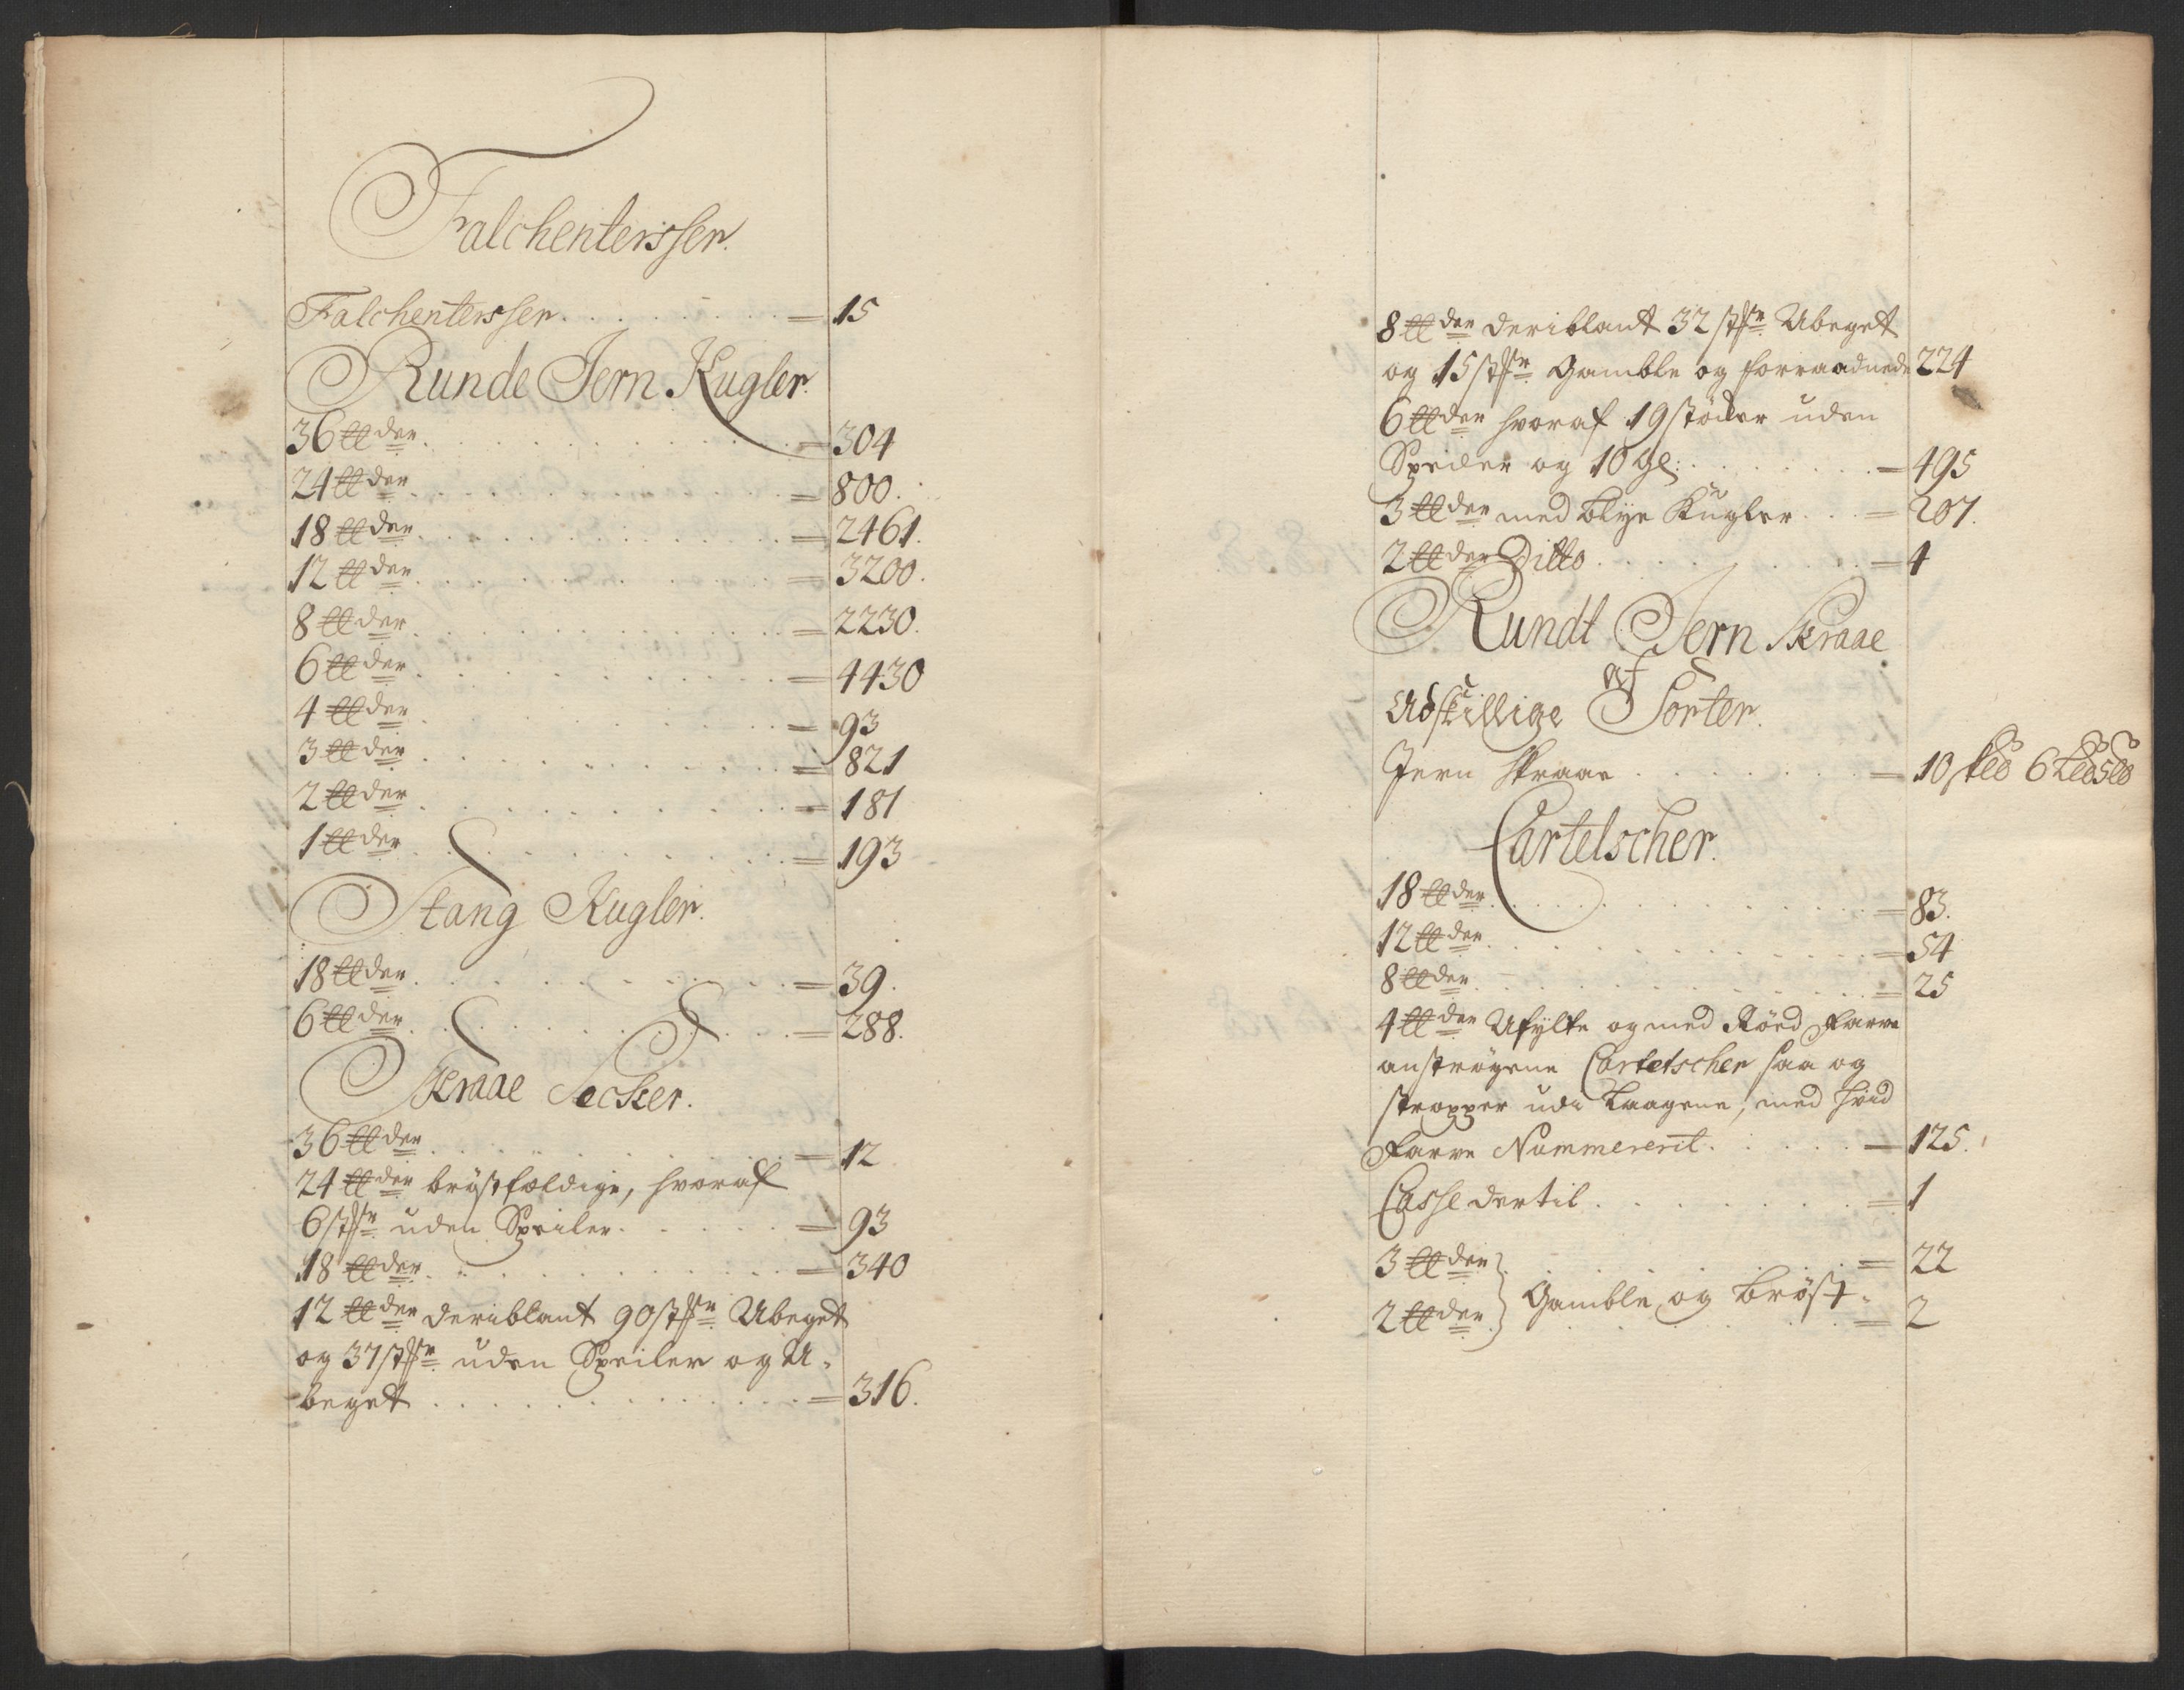 Falchentersser.
Falchentersser. = 15
Runde Jern Kugler.
36 ℔der = 304
24 ℔der = 800.
18 ℔der = 2461.
12 ℔der = 3200.
8 ℔der = 2230.
6 ℔der = 4430
4 ℔der = 93
3 ℔der = 821
2 ℔der = 181
1 ℔der = 193
Stang Kugler.
18 ℔der = 39.
6 ℔der = 288.
Skraae Secker.
36 ℔der = 12
24 ℔der brøstfældige, hvoraf
6 stkr uden Speiler = 93
18 ℔der = 340
12 ℔der deriblant 90 stkr Ubeget
og 37 stkr uden Speiler og U-
beget = 316.
8 ℔der deriblant 32 stkr Ubeget
og 15 stkr Gamble og forraadnede 224
6 ℔der hvoraf 19 stöcker uden
Speiler og 10 Gl: = 495
3 ℔der med blye Kugler = 207.
2 ℔der Ditto = 4
Rundt Jern Skraae
af
Adskillige Sorter.
Jern Skraae = 10 6 5
Cartetscher.
18 ℔der = 83.
12 ℔der = 54
8 ℔der = 25
4 ℔der Ufylte og med Röed farve
anströgene Cartetscher saa og
stropper udi Laagene, med hvid
farve Nummererit = 125.
Casse dertil = 1
3 ℔der = 22
Gamble og brøst-
2 ℔der = 2